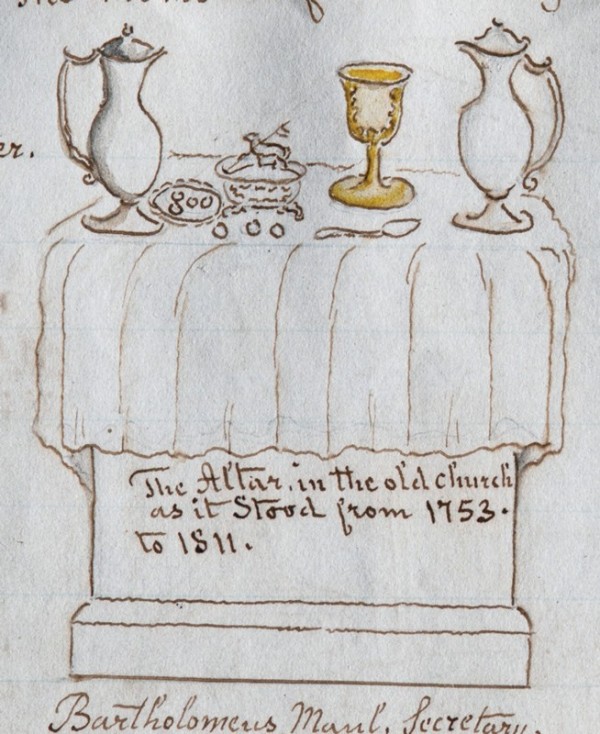 er.
The Altar, in the old church
as it Stood from 1753.
to 1811.
Bartholomeus Maul, Secretary.